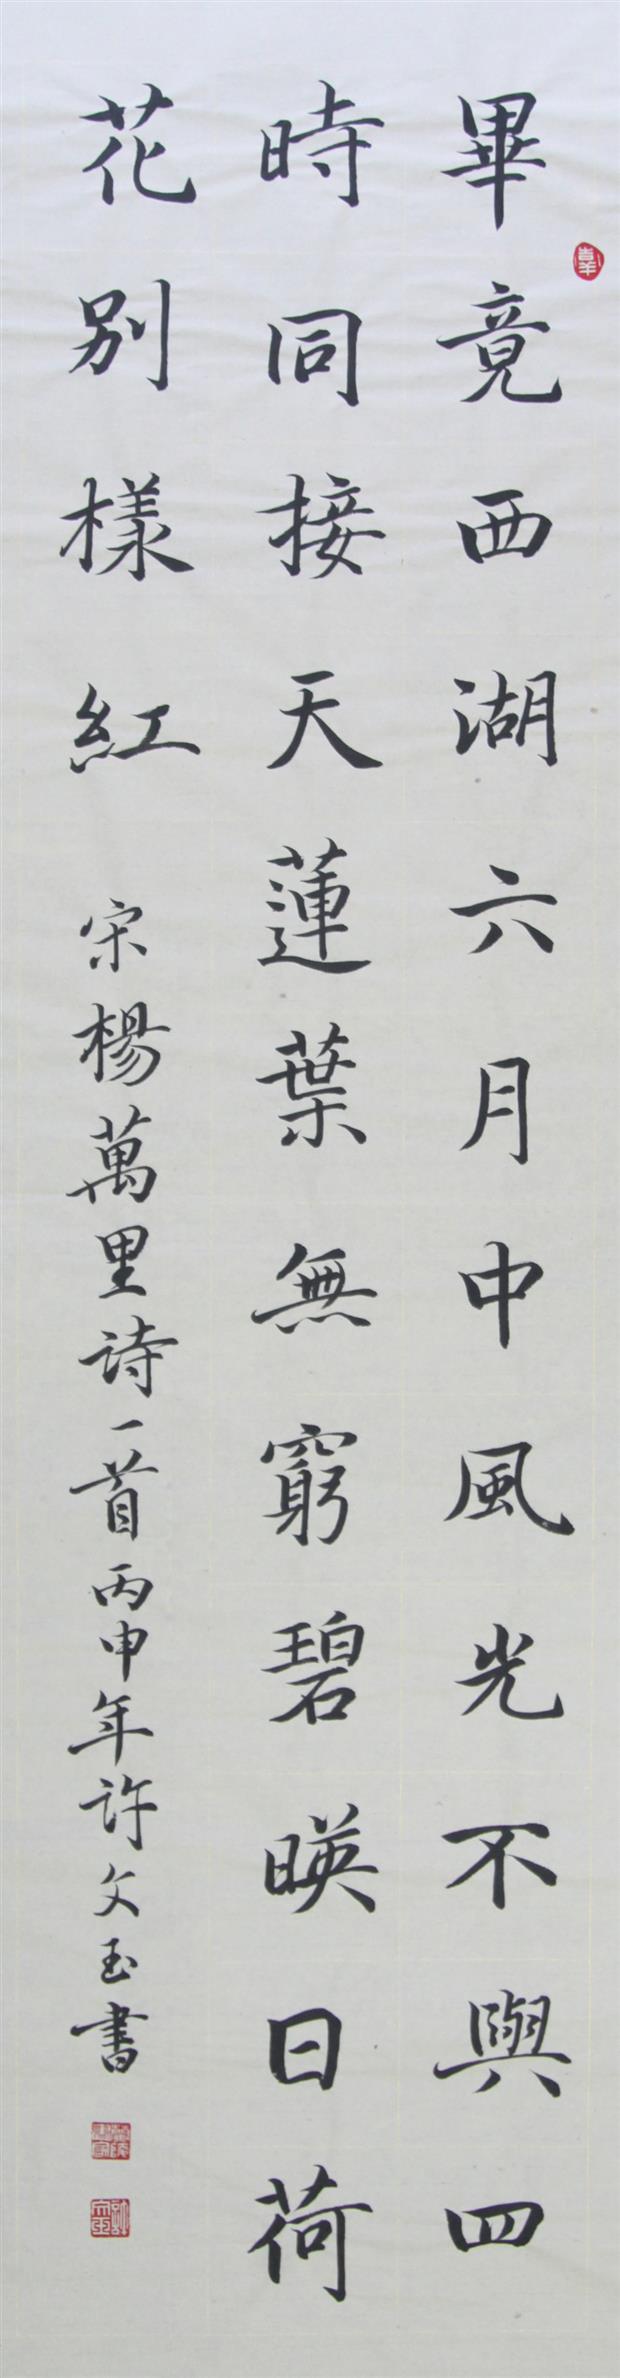 畢竟西湖六月中風光不與四
時同接天蓮葉無窮碧暎日荷
花別樣紅 宋楊萬里詩一首丙申年許文玉書